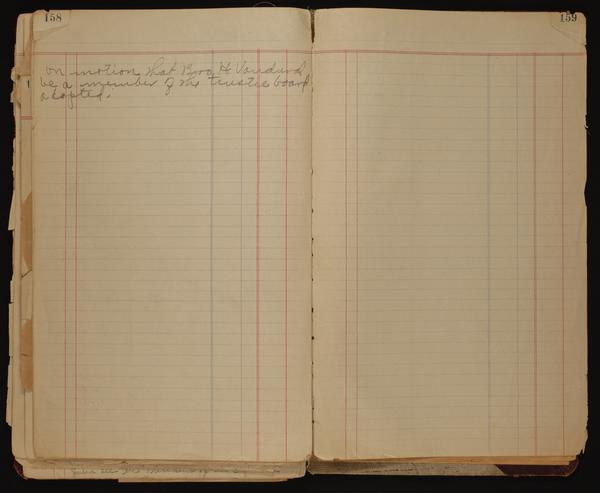 158
on motion that Bro H
be a member of the trustee board
adopted.
159